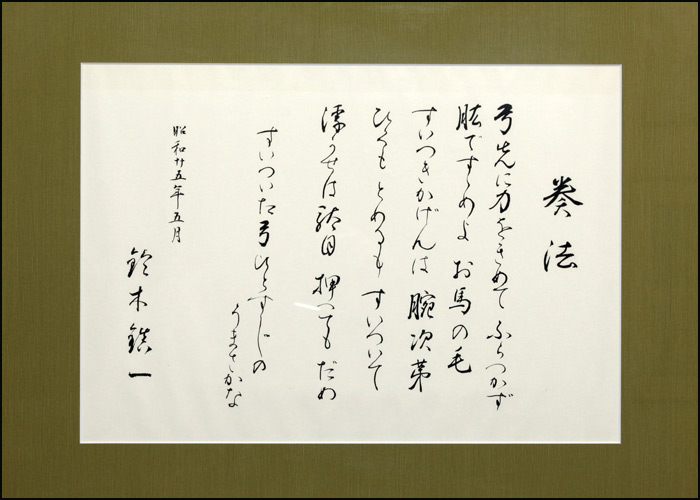 奏法
弓先に力をきめて ふらつかず
肱ですゝめよ お馬の毛
すいつきかげんは 腕次第
ひくも とめるも すいついて
駄目 押へてもだめ
すいついた弓ひとすじの
うまさかな
昭和廿五年五月
鈴木鎮一